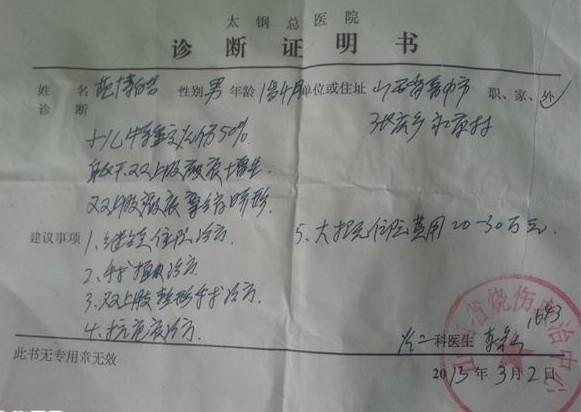 太钢总医院
诊断证明书
姓名 范博皓 性别 男 年龄 1岁4月 单位或住址 山西省晋中市 职、家、外
诊断 张庆乡永康村
小儿特重烧伤50%
躯干双上肢瘢痕增生
双上肢瘢痕挛缩畸形.
建议事项 1、继续住院治疗. 5、大概住院费用20-30万元.
2、手术植皮治疗
3、双上肢整形手术治疗.
4、抗瘢痕治疗.
1643
烧二科医生
此书无专用章无效 2013年3月2日
省烧伤 治中心